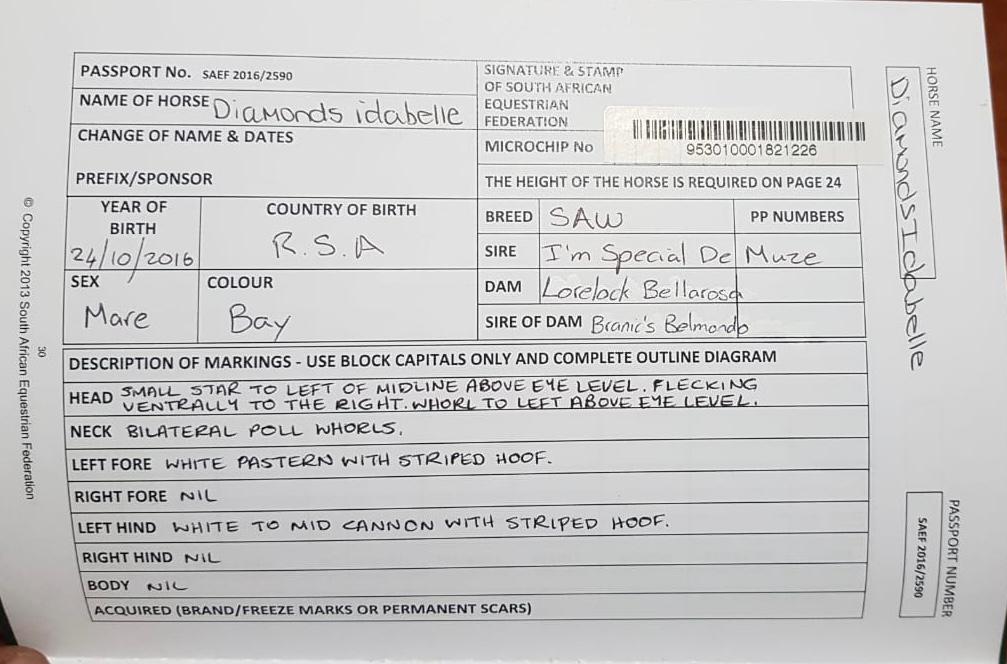 PASSPORT No. SAEF 2016/2590
NAME OF HORSE Diamonds idabelle
CHANGE OF NAME & DATES
PREFIX/SPONSOR
SIGNATURE & STAMP
OF SOUTH AFRICAN
EQUESTRIAN
FEDERATION
MICROCHIP No
953010001821226
THE HEIGHT OF THE HORSE IS REQUIRED ON PAGE 24
YEAR OF
BIRTH
24/10/2016
COUNTRY OF BIRTH
R.S.A
SEX
Mare
COLOUR
Bay
BREED SAW PP NUMBERS
SIRE I'm Special De Muze
DAM Lorelock Bellarosa
SIRE OF DAM Branic's Belmondo
DESCRIPTION OF MARKINGS - USE BLOCK CAPITALS ONLY AND COMPLETE OUTLINE DIAGRAM
HEAD SMALL STAR TO LEFT OF MIDLINE ABOVE EYE LEVEL. FLECKING
VENTRALLY TO THE RIGHT. WHORL TO LEFT ABOVE EYE LEVEL.
NECK BILATERAL POLL WHORLS.
LEFT FORE WHITE PASTERN WITH STRIPED HOOF.
RIGHT FORE NIL
LEFT HIND WHITE TO MID CANNON WITH STRIPED HOOF.
RIGHT HIND NIL
BODY NIL
ACQUIRED (BRAND/FREEZE MARKS OR PERMANENT SCARS)
HORSE NAME
Diamonds Idabelle
PASSPORT NUMBER
SAEF 2016/2590
30
© Copyright 2013 South African Equestrian Federation